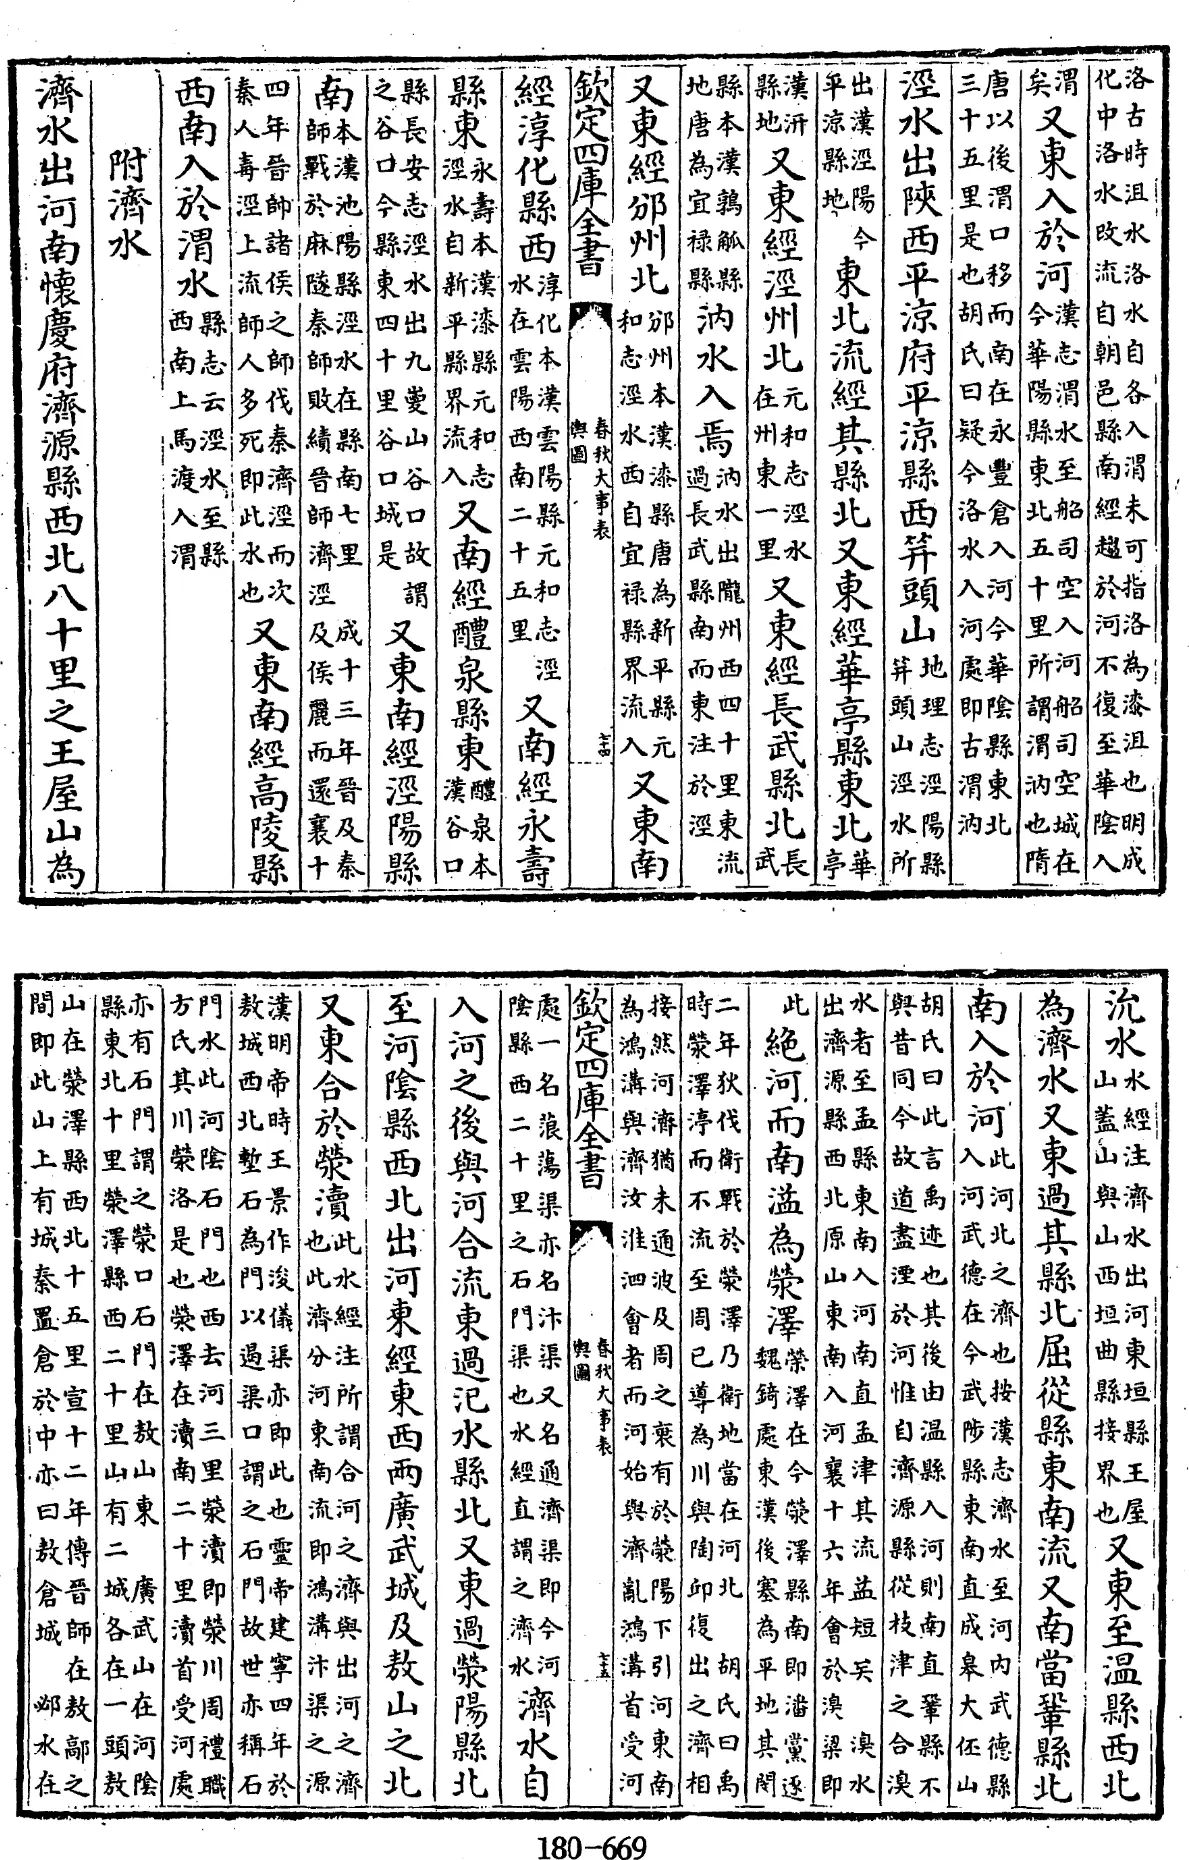 洛古時沮水洛水自各入渭未可指洛為漆沮也明成化中洛水改流自朝邑縣南經趨於河不復至華陰入
渭矣又東入於河漢志渭水至船司空入河船司空城在今華陽縣東北五十里所謂渭汭也隋
唐以後渭口移而南在永豐倉入河今華陰縣東北三十五里是也胡氏曰疑今洛水入河處即古渭汭
涇水出陝西平涼府平涼縣西筓頭山地理志涇陽縣筓頭山涇水所
出漢涇陽今平涼縣地東北流經其縣北又東經華亭縣東北華亭
漢汧縣地又東經涇州北元和志涇水在州東一里又東經長武縣北長武
縣本漢鶉觚縣地唐為宜祿縣汭水入焉汭水出隴州西四十里東流過長武縣南而東注於涇
又東經邠州北邠州本漢漆縣唐為新平縣元和志涇水西自宜祿縣界流入又東南
欽定四庫全書 春秋大事表 輿圖 七十四
經淳化縣西淳化本漢雲陽縣元和志涇水在雲陽西南二十五里又南經永壽
縣東永壽本漢漆縣元和志涇水自新平縣界流入又南經醴泉縣東醴泉本漢谷口
縣長安志涇水出九嵏山谷口故謂之谷口今縣東四十里谷口城是又東南經涇陽縣
南本漢池陽縣涇水在縣南七里成十三年晉及秦師戰於麻隧秦師敗績晉師濟涇及侯麗而還襄十
四年晉帥諸侯之師伐秦濟涇而次秦人毒涇上流師人多死即此水也又東南經高陵縣
西南入於渭水縣志云涇水至縣西南上馬渡入渭
附濟水
濟水出河南懷慶府濟源縣西北八十里之王屋山為
沇水水經注濟水出河東垣縣王屋山蓋山與山西垣曲縣接界也又東至溫縣西北
為濟水又東過其縣北屈從縣東南流又南當鞏縣北
南入於河此河北之濟也按漢志濟水至河內武德縣入河武德在今武陟縣東南直成皋大伾山
胡氏曰此言禹迹也其後由溫縣入河則南直鞏縣不與昔同今故道盡湮於河惟自濟源縣從枝津之合溴
水者至孟縣東南入河南直孟津其流益短矣溴水出濟源縣西北原山東南入河襄十六年會於溴梁即
此絶河而南溢為滎澤滎澤在今滎澤縣南即潘黨逐魏錡處東漢後塞為平地其閔
二年狄伐衛戰於滎澤乃衛地當在河北胡氏曰禹時滎澤渟而不流至周已導為川與陶邱復出之濟相
接然河濟猶未通波及周之衰有於滎陽下引河東南為鴻溝與濟汝淮泗會者而河始與濟亂鴻溝首受河
欽定四庫全書 春秋大事表 輿圖 七十五
處一名蒗蕩渠亦名汴渠又名通濟渠即今河陰縣西二十里之石門渠也水經直謂之濟水濟水自
入河之後與河合流東過汜水縣北又東過滎陽縣北
至河陰縣西北出河東經東西兩廣武城及敖山之北
又東合於滎瀆此水經注所謂合河之濟與出河之濟也此濟分河東南流即鴻溝汴渠之源
漢明帝時王景作浚儀渠亦即此也靈帝建寧四年於敖城西北壍石為門以遏渠口謂之石門故世亦稱石
門水此河陰石門也西去河三里滎瀆即滎川周禮職方氏其川滎洛是也滎澤在瀆南二十里瀆首受河處
亦有石門謂之滎口石門在敖山東廣武山在河陰縣東北十里滎澤縣西二十里山有二城各在一頭敖
山在滎澤縣西北十五里宣十二年傳晉師在敖鄗之間即此山上有城秦置倉於中亦曰敖倉城邲水在
180-669